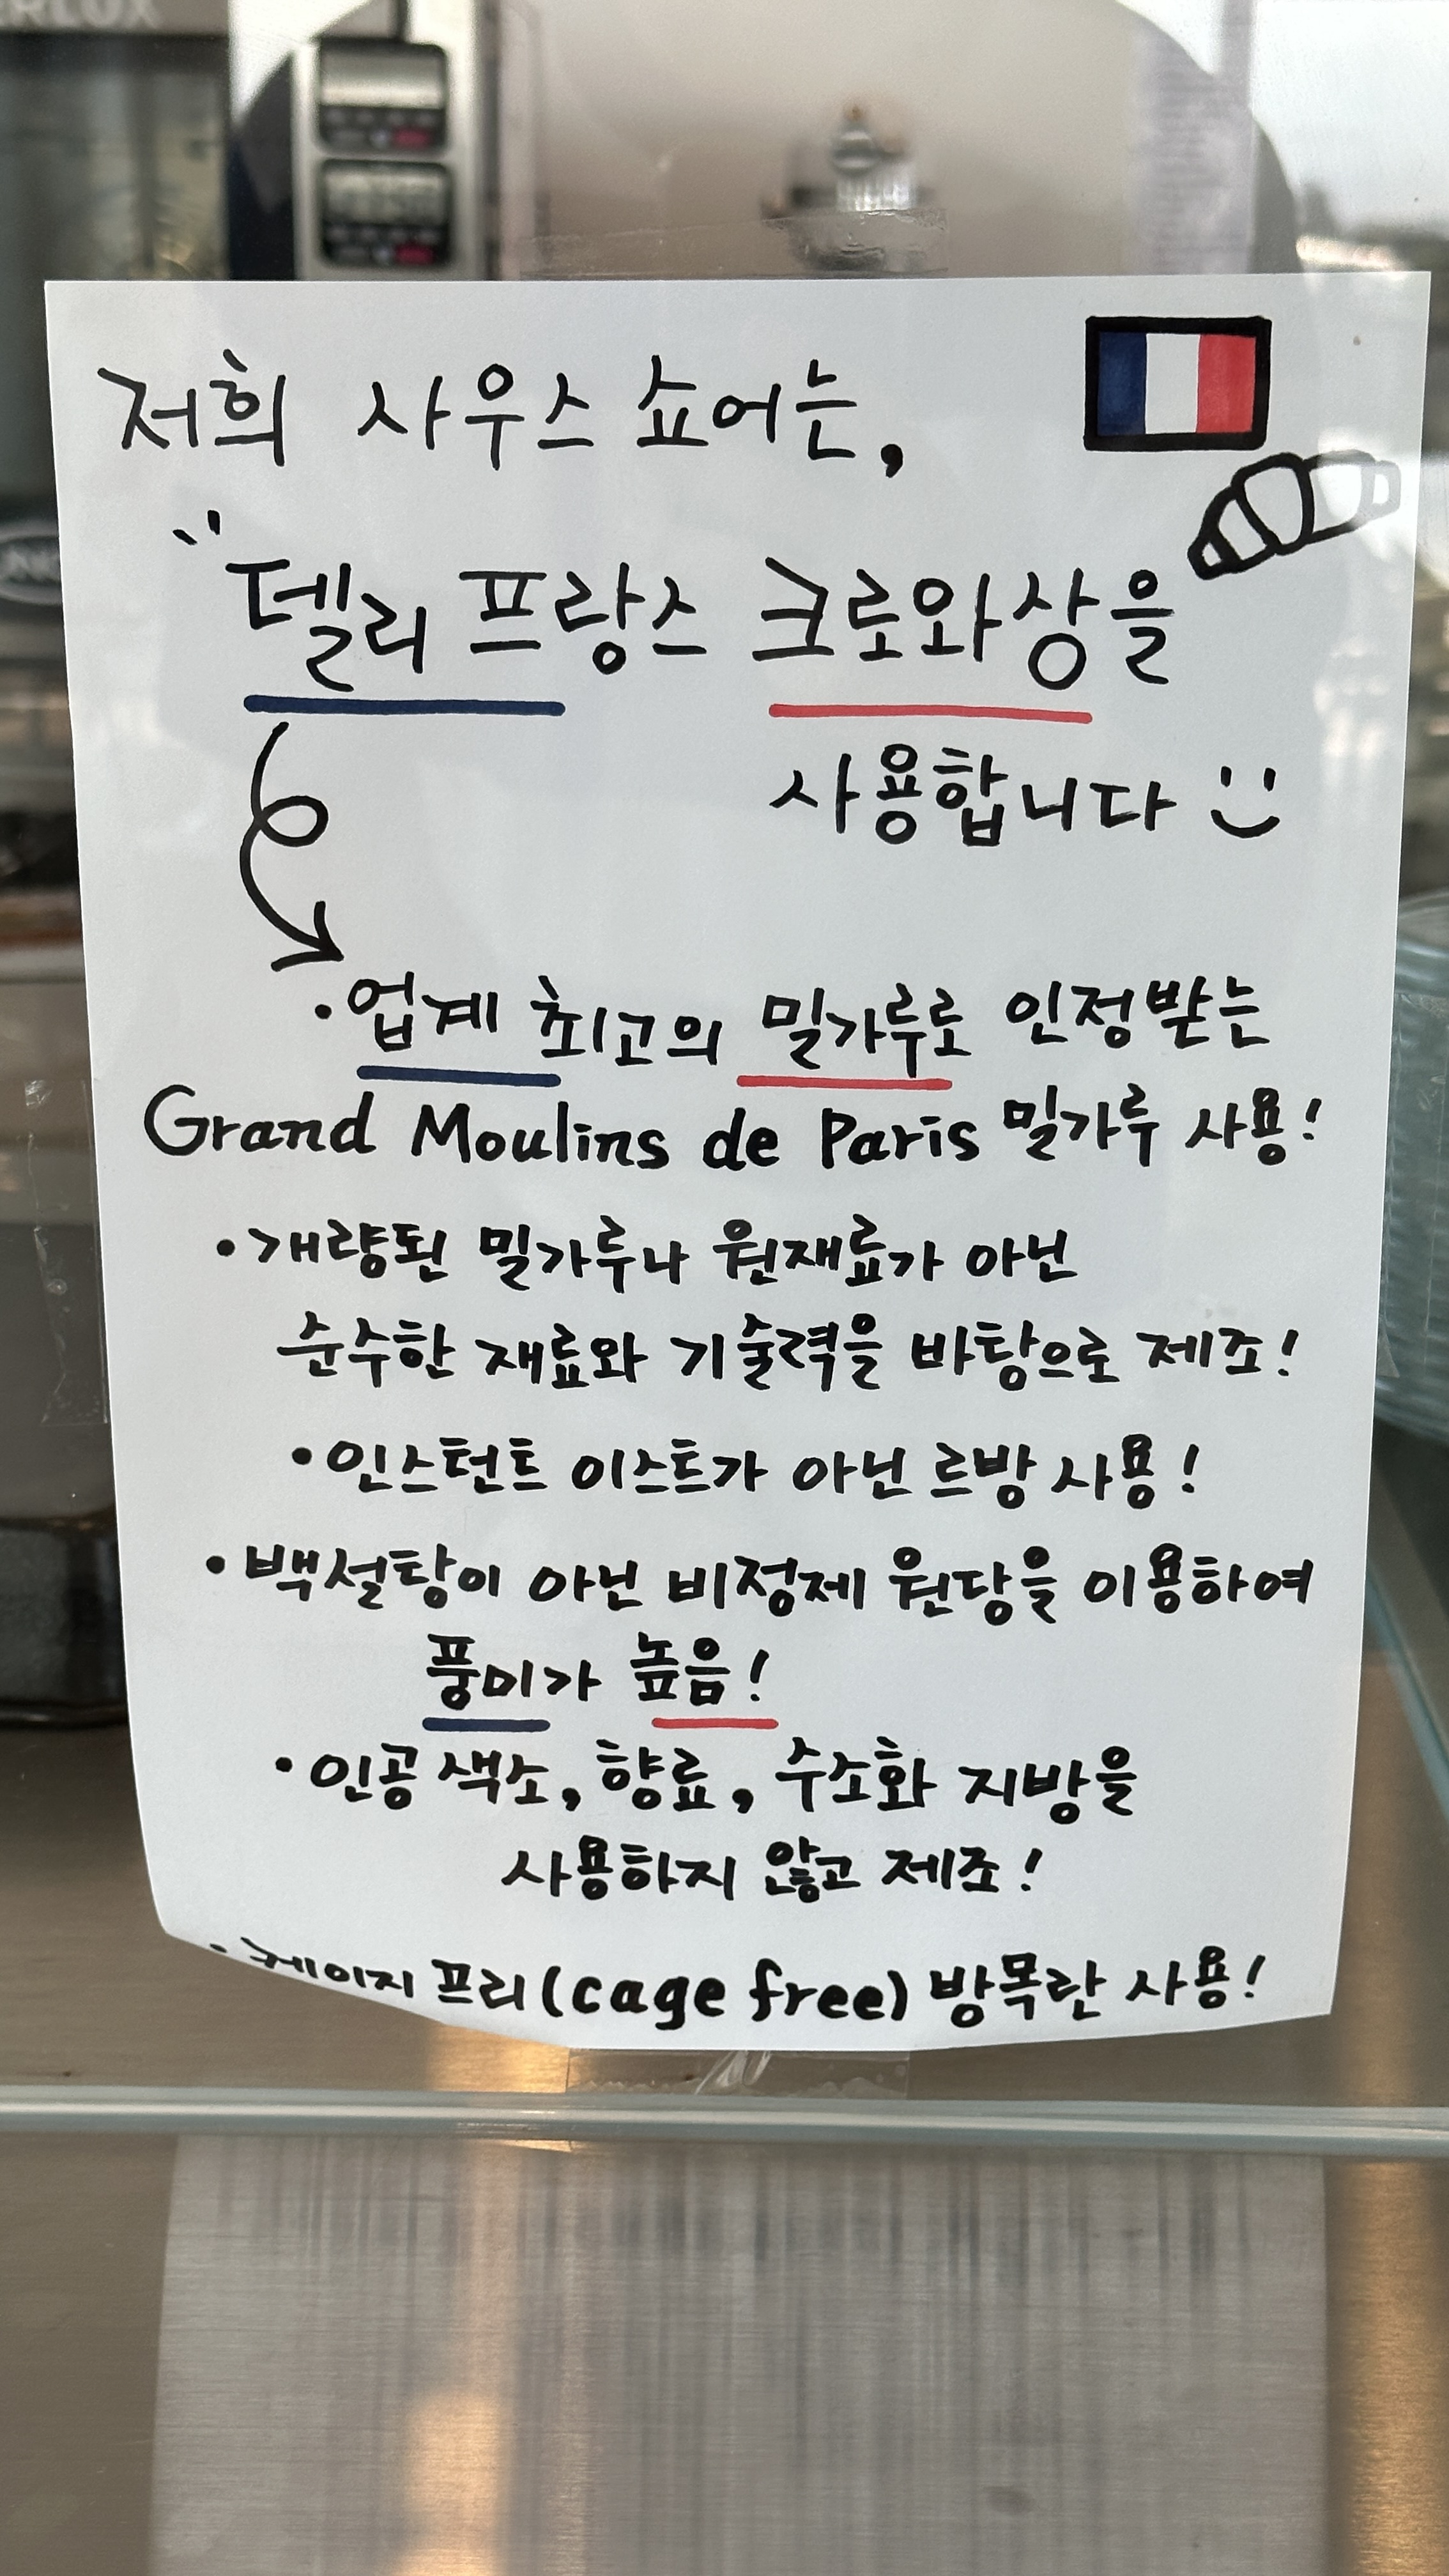 저희 사우스 쇼어는,
"델리 프랑스 크로와상을
사용합니다
·업계 최고의 밀가루로 인정받는
Grand Moulins de Paris 밀가루 사용!
·개량된 밀가루나 원재료가 아닌
순수한 재료와 기술력을 바탕으로 제조!
·인스턴트 이스트가 아닌 르방 사용!
·백설탕이 아닌 비정제 원당을 이용하여
풍미가 높음!
·인공 색소, 향료, 수소화 지방을
사용하지 않고 제조!
·케이지 프리(cage free) 방목란 사용!